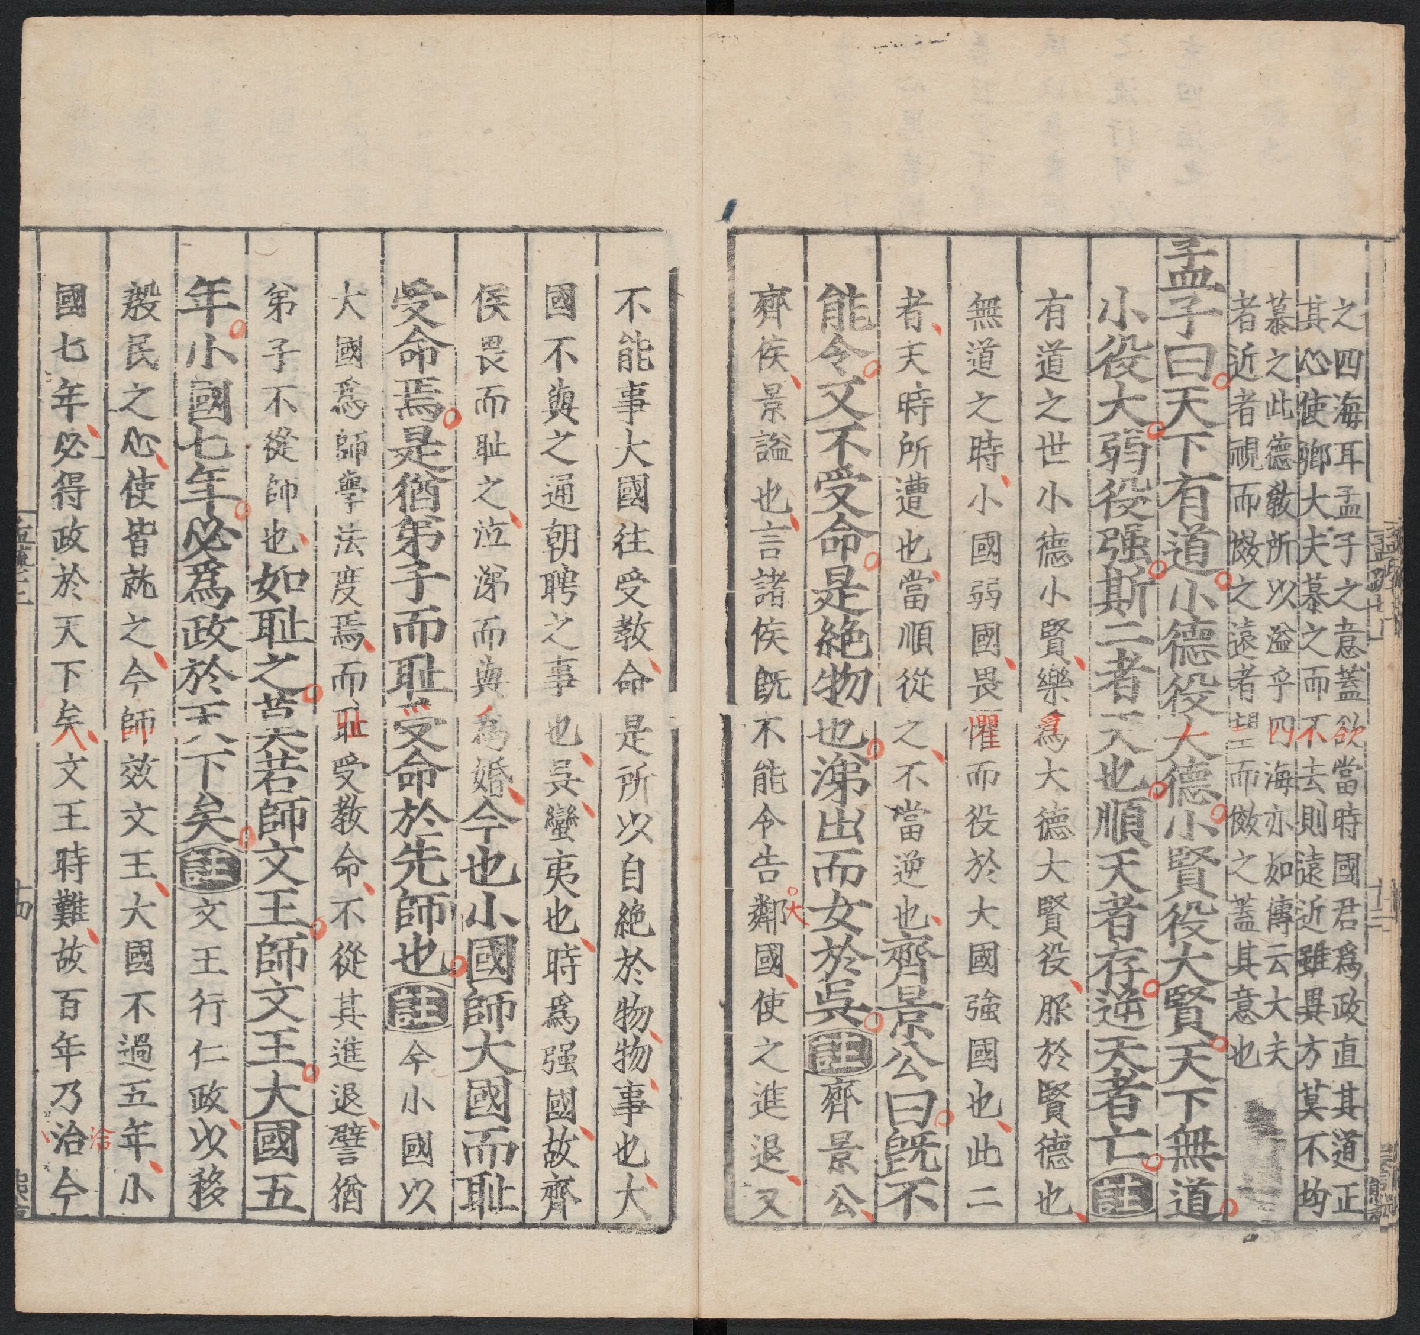 之四海耳孟子之意蓋欲當時國君爲政直其道正
其心使鄉大夫慕之而不去則遠近雖異方莫不均
慕之此德敎所以溢乎四海亦如傳云大夫
者近者視而倣之遠者望而倣之蓋其意也
孟子曰天下有道小德役大德小賢役大賢天下無道
小役大弱役强斯二者天也順天者存逆天者亡註
有道之世小德小賢樂爲大德大賢役服於賢德也
無道之時小國弱國畏懼而役於大國強國也此二
者天時所遭也當順從之不當逆也齊景公曰旣不
能令又不受命是絶物也涕出而女於吳註齊景公
齊侯景謚也言諸侯旣不能令告鄰國使之進退又
大
不能事大國往受敎命是所以自絶於物物事也大
國不與之通朝聘之事也吳蠻夷也時爲强國故齊
侯畏而耻之泣涕而與爲婚今也小國師大國而耻
受命焉是猶弟子而耻受命於先師也註今小國以
大國爲師學法度焉而耻受敎命不從其進退譬猶
弟子不從師也如耻之莫若師文王師文王大國五
年小國七年必爲政於天下矣註文王行仁政以移
殷民之心使皆就之今師效文王大國不過五年小
國七年必得政於天下矣文王時難故百年乃治今
洽
十四